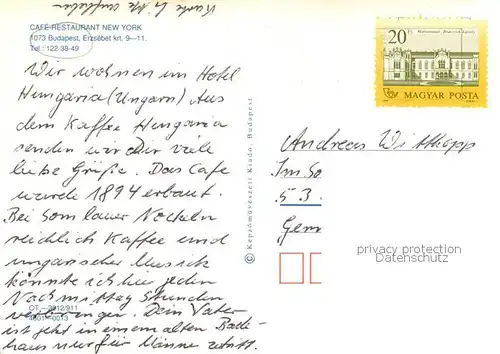 CAFÉ-RESTAURANT NEW YORK
1073 Budapest, Erzsébet krt. 9—11.
Tel.: 122-38-49
Wir wohnen im Hotel
Hungaria (Ungarn) Aus
dem Kaffee Hungaria
senden wir Dir viele
liebe Grüße. Das Cafe
wurde 1894 erbaut.
Bei Somlauer Nockeln
reichlich Kaffee und
ungarischer Musik
könnte ich hier jeden
Nachmittag Stunden
verbringen. Dein Vater
ist jetzt in einem alten Bade-
haus nur für Männer
OT—2912/911
4601—0013
© Képzőművészeti Kiadó, Budapest
20 Ft
MAGYAR POSTA
Andreas Witthopp
Im So
53
Gem
privacy protection
Datenschutz